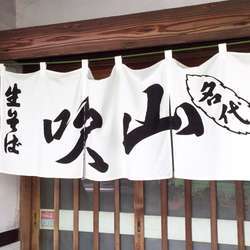 名代
山吹
生そば